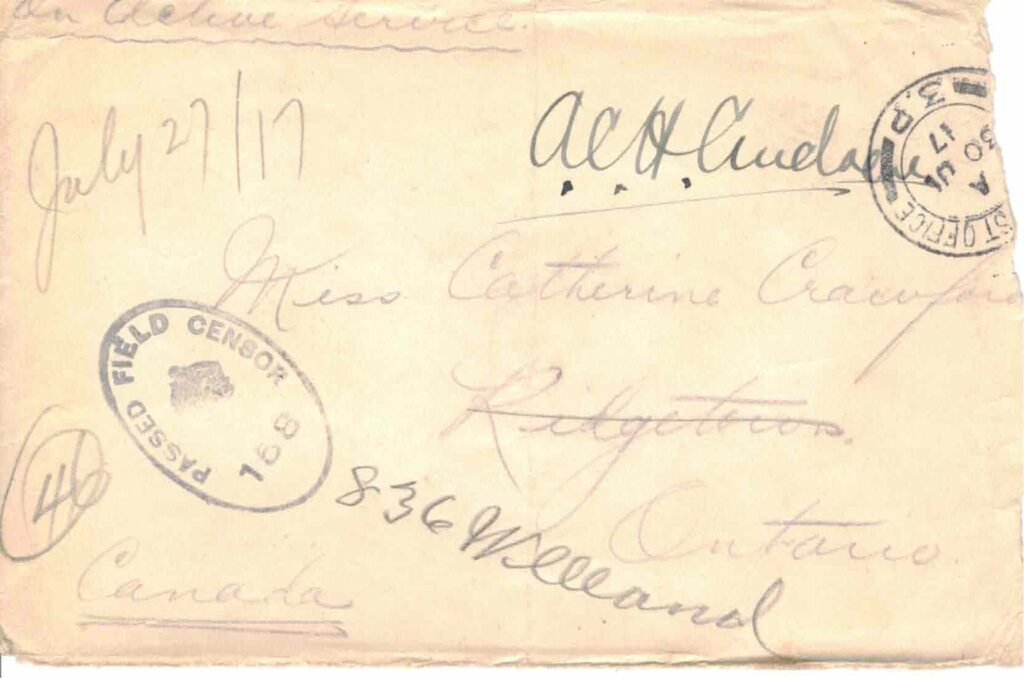 On Active Service.
July 27/17
A.C.H.
ST OFFICE
3.P
A
30 UL
17
Miss Catherine Crawford
PASSED FIELD CENSOR
158
Ridgetown.
46
836 Welland
Ontario.
Canada